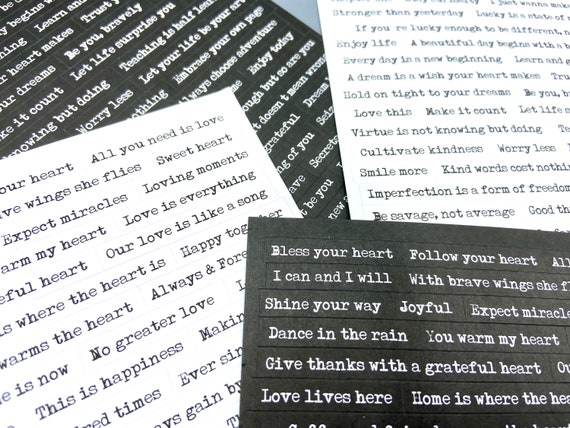 begins wi
Learn and
Trust yo
heart makes
Be you, bravely
dreams
Let life surprise you
Teaching is half lear
ke it count
Let your life be your ar
knowing but doing
Embrace your own page
Worry less
always choose adventure
nothing
Enjoy today
ough but so are you
t doesn't mean wrong
rateful
ng of you
Seize
Secrets
t be you
Stronger than yesterday Lucky is a state of m
If you're lucky enough to be different, n
Enjoy life A beautiful day begins with a b
Every day is a new beginning Learn and g
A dream is a wish your heart makes Tru
Hold on tight to your dreams Be you, b
Love this Make it count Let life s
Virtue is not knowing but doing Te
Cultivate kindness Worry less
Smile more Kind words cost nothin
Imperfection is a form of freedom
Be savage, not average Good th
our heart All you need is love
ve wings she flies Sweet heart
Expect miracles Loving moments
arm my heart Love is everything
teful heart Our love is like a song
is where the heart is Happy together
warms the heart Always & Fore
e is now No greater love
This is happiness Makin
dred times Ever sin
ays gain by
Bless your heart Follow your heart All
I can and I will With brave wings she fl
Shine your way Joyful Expect miracle
Dance in the rain You warm my heart
Give thanks with a grateful heart Ou
Love lives here Home is where the hear